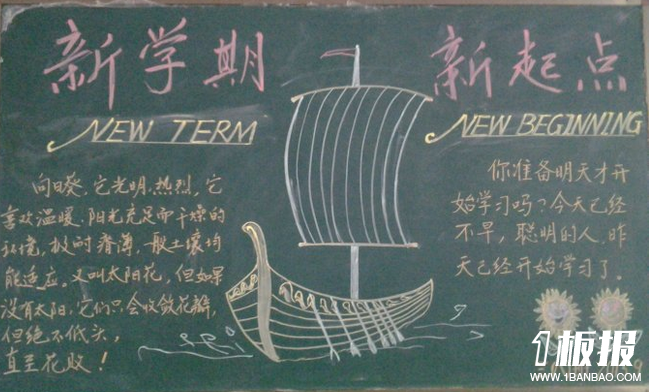 新学期
新起点
NEW TERM
NEW BEGINNING
向日葵，它光明、热烈，它
喜欢温暖、阳光充足而干燥的
环境，极耐瘠薄，一般土壤均
能适应。又叫太阳花，但如果
没有太阳，它们只会收敛花瓣，
但绝不低头，
直至花败！
你准备明天才开
始学习吗？今天已经
不早，聪明的人，昨
天已经开始学习了。
1板报
WWW.1BANBAO.COM